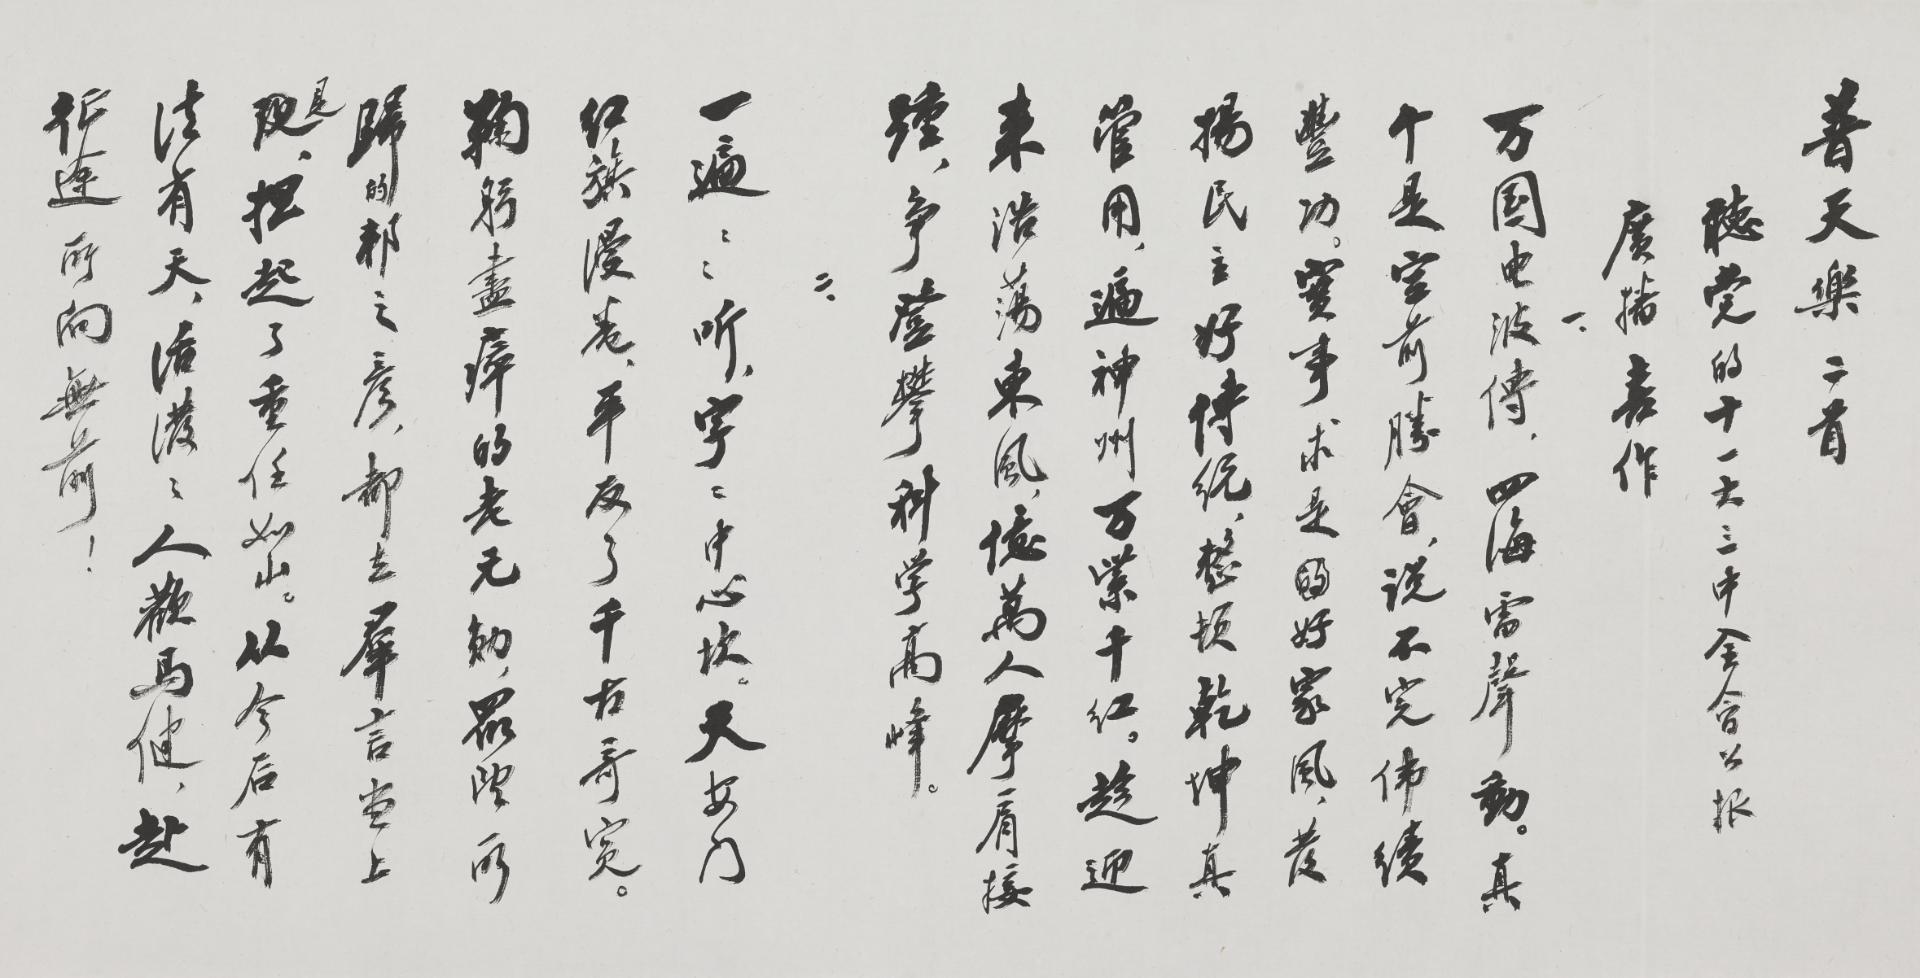 普天樂 二首
聽党的十一大三中全會公报
廣播喜作
一、
万国电波傳，四海雷聲動。真
个是空前勝會，说不完伟績
豐功。實事求是的好家風，发
揚民主好傳统，整顿乾坤真
管用，遍神州万紫千红。趁迎
来浩荡東風，億萬人摩肩接
踵，争登攀科学高峰。
二、
一遍々々听，字々中心坎。天安门
红旗漫卷，平反了千古奇冤。
鞠躬盡瘁的老元勋，眾望所
歸的邦之彦，都在羣言堂上
现，担起了重任如山。从今后有
是
法有天，活潑々人歡馬健，赴
征途所向無前！